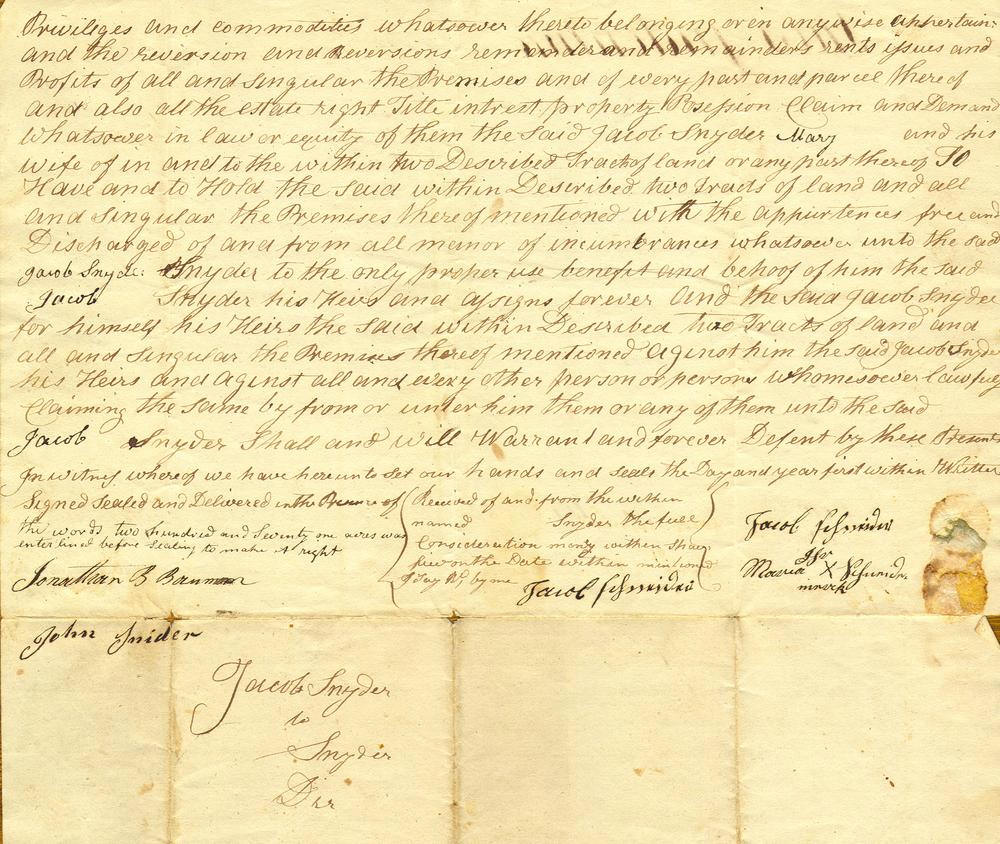 Priviliges and commodities whatsower thereto belonging or en any wise appertain
and the reversion and Reversions remainder and remainders rents issues and
Profits of all and singular the Premises and of every part and parcel there of
and also all the estate right Title intrest property Posession Claim and Demand
whatsoever in law or equity of them the said Jacob Snyder Mary and his
wife of in and to the within two Described Tracts of land or any part there of To
Have and to Hold the said within Described two tracts of land and all
and singular the Premises there of mentioned with the appurtences free and
Discharged of and from all manor of incumbrances whatsoever unto the said
Jacob Snyder Snyder to the only proper use benefit and behoof of him the said
Jacob Snyder his Heirs and assigns forever And the said Jacob Snyder
for himself his Heirs the said within Described two Tracts of land and
all and singular the Premises there of mentioned Aginst him the said Jacob Snyder
his Heirs and Aginst all and every other person or persons whomesoever lawfuly
Claiming the same by from or under him them or any of them unto the said
Jacob Snyder Shall and will Warrant and forever Defent by these Presents
In witness where of we have here unto set our hands and seals the Day and year first within Written
Signed sealed and Delivered in the Presence of
the words two hundred and Seventy one acres was
enterlined before sealing to make it right
Jonathan B Bauman
John Snider
Received of and from the within
named Snyder the full
Consideration mony within
on the Date within mentioned
by me
Jacob Schneider
Jacob Schneider
her
Maria X Schneider
mark
Jacob Snyder
to
Snyder